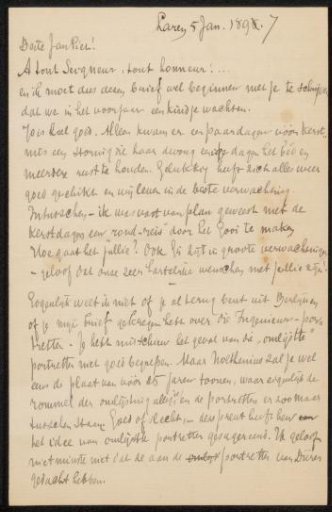 Laren 5 Jan. 1897
Beste Jan Piet!
A tout Seigneur, tout honneur! ...
en ik moet dus dezen brief wel beginnen met je te schrijven
dat we in het voorjaar een kindje wachten.
Toos heel goed. Alleen kwam er een paar dagen vóór kerst-
mis een stoornis die haar dwong enige dagen het bed en
meerdere rust te houden. Gelukkig heeft zich alles weer
goed geschikt en wij leven in de beste verwachting
Intusschen - ik was vast van plan geweest met de
Kerstdagen een rond-reis door het Gooi te maken
Hoe gaat het jullie? Ook gij zijt in groote verwachtingen
- geloof dat onze zeer hartelijke wenschen met jullie zijn!
Eigenlijk weet ik niet of je al terug bent uit
of je mijn brief gekregen hebt over die Ingenieurs-por-
tretten - Je hebt misschien het geval van de "omlijste"
portretten niet goed begrepen. Maar Noltenius zal je wel
eens de plaat van vóór 25 jaren toonen, waar eigenlijk de
rommel der omlijsting alles is en de portretten er zoo maar
tusschen staan Goed of slecht, - des prent heeft hem
het idee van omlijste portretten gesuggereerd. Ik geloof
niet minste niet dat ze aan de portretten van Durer
gedacht hebben.